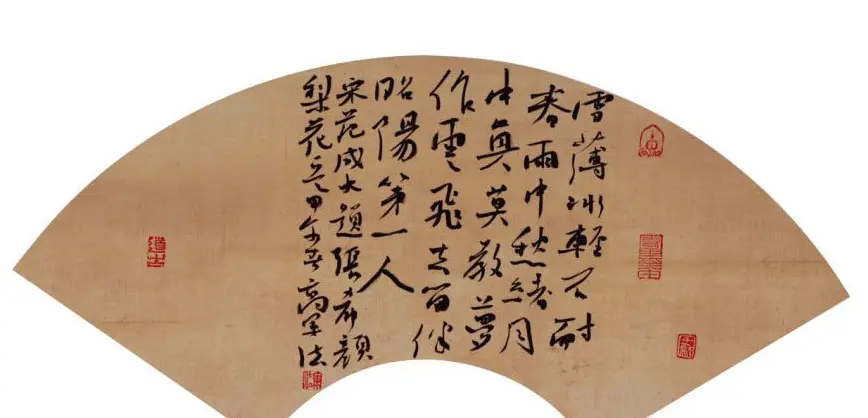 雪薄冰輕不耐
春雨中愁緒月
中真莫教夢
作雲飛去留伴
昭陽第一人
宋范成大題張希顏
梨花甲午春高軍法
道士